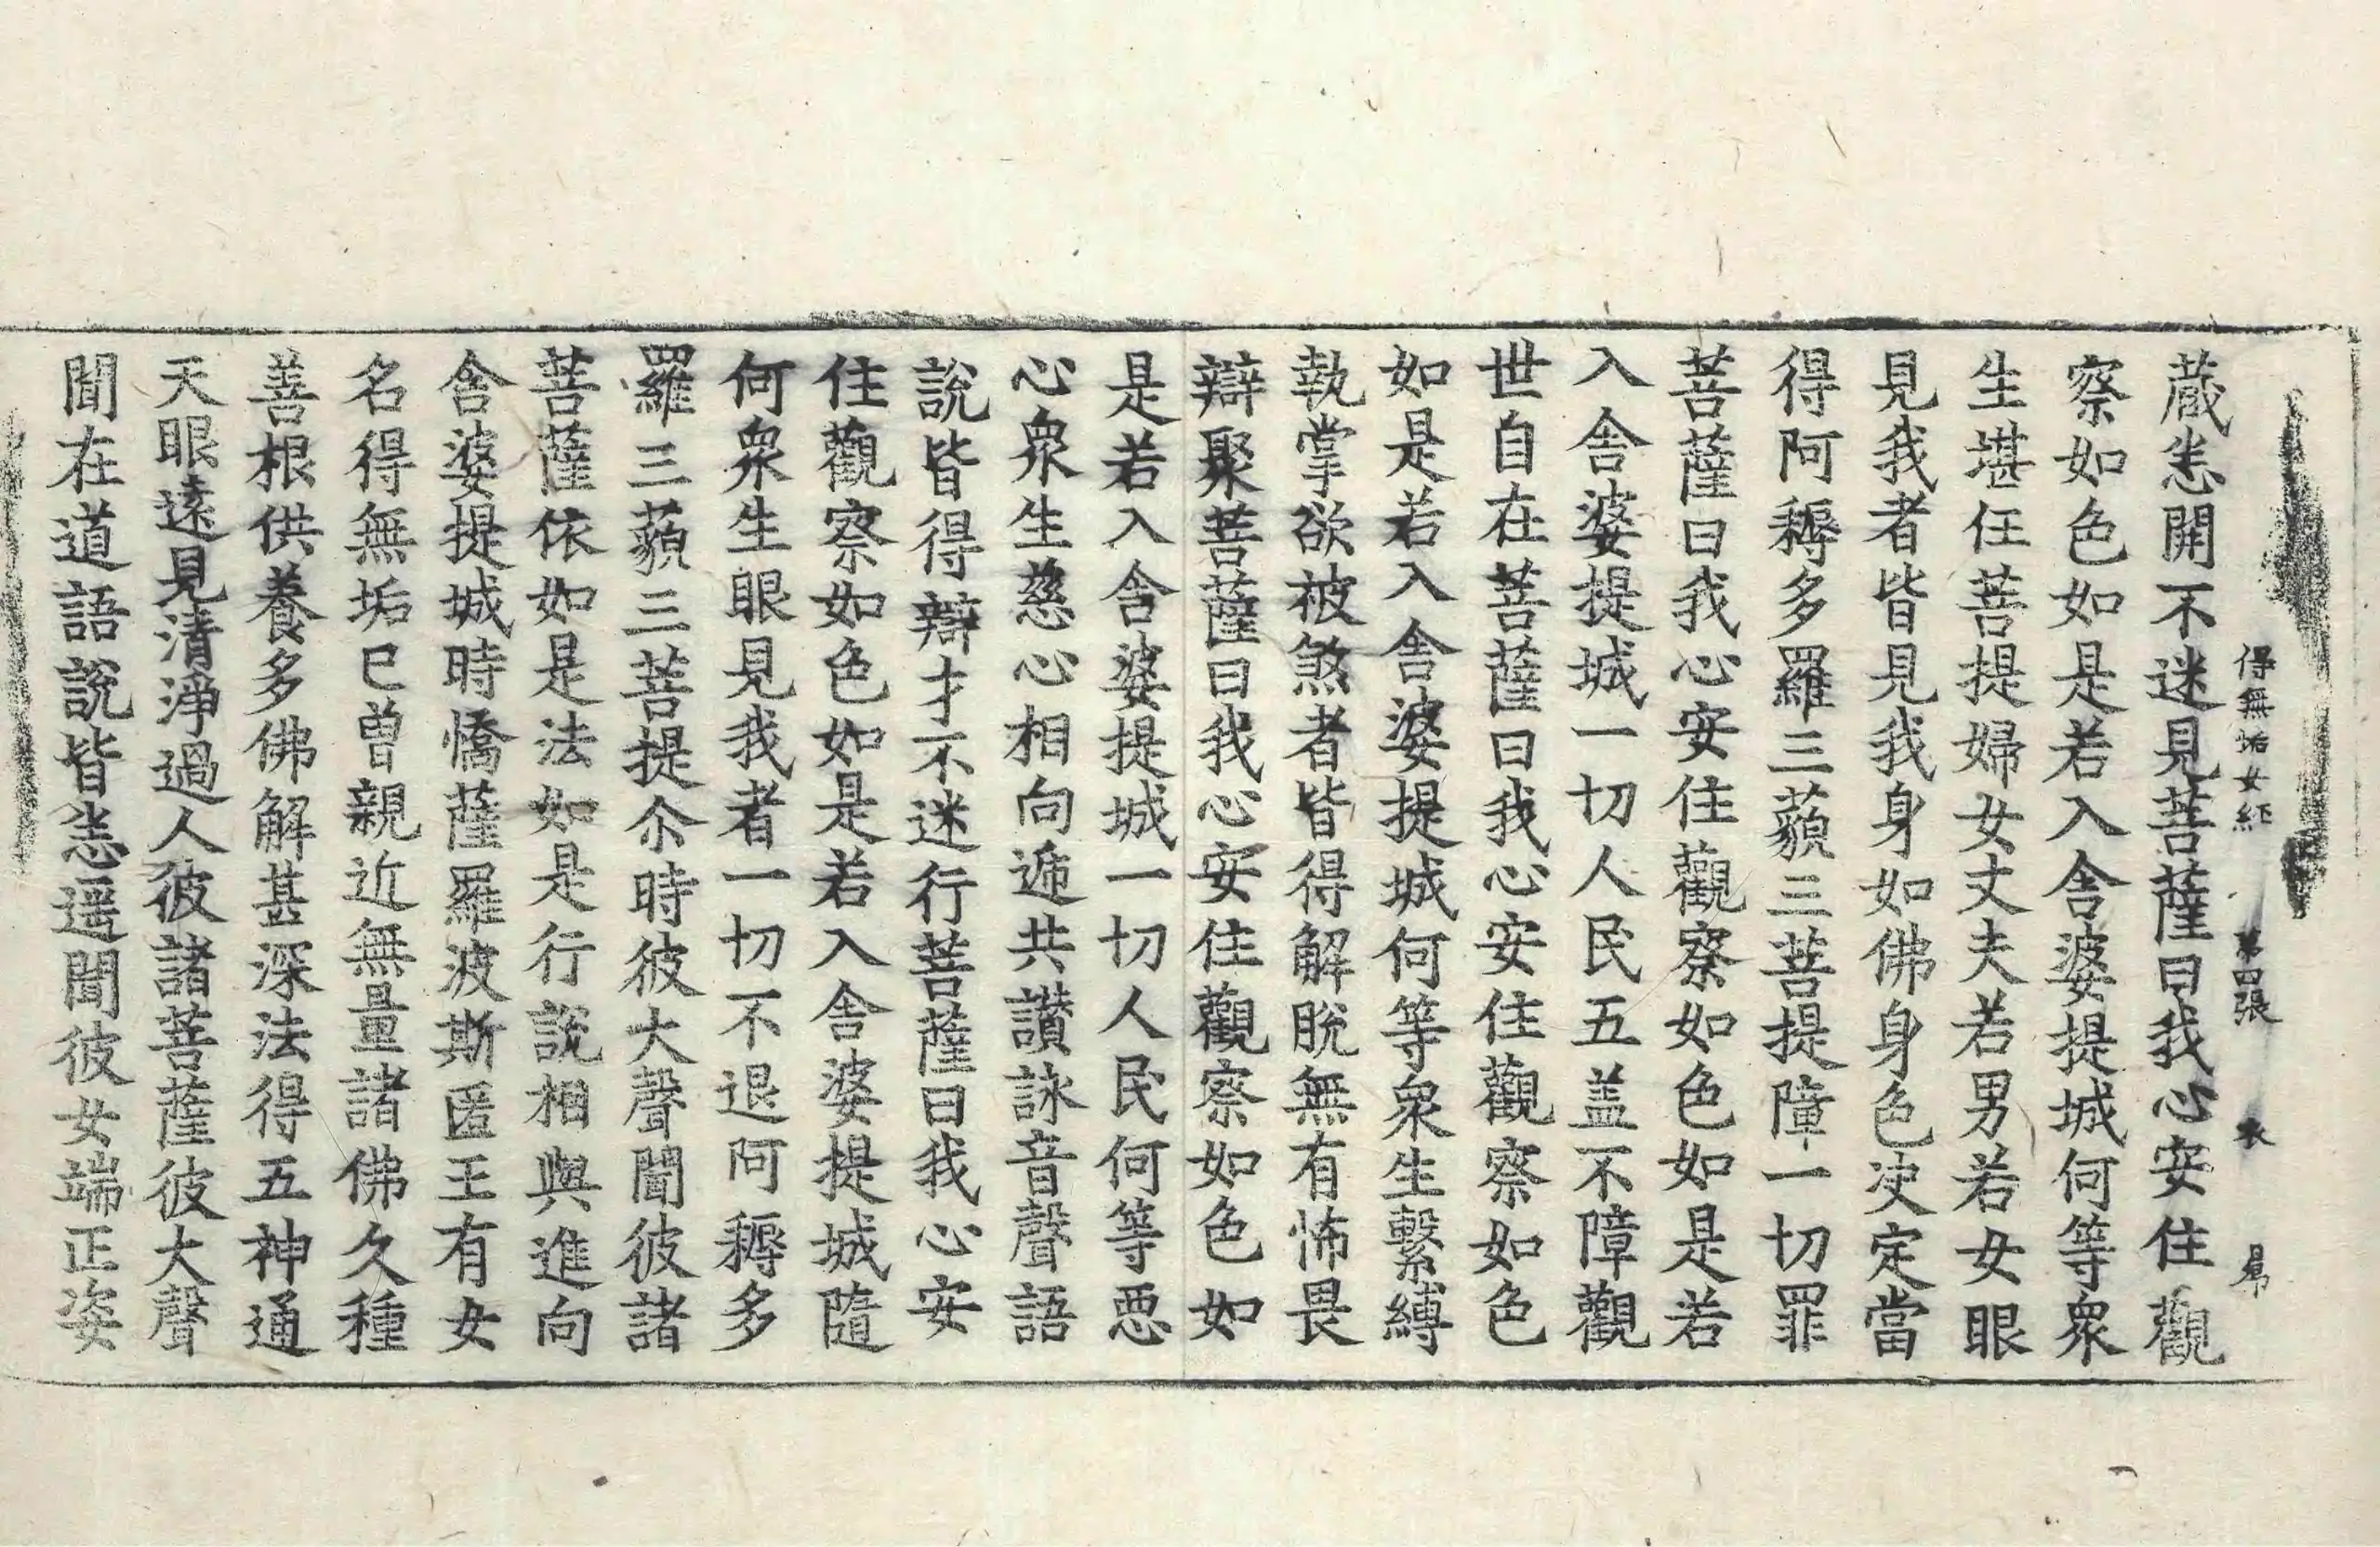 得無垢女経 第四張 衣
蔵悉開不迷見菩薩曰我心安住觀
察如色如是若入舎婆提城何等衆
生堪任菩提婦女丈夫若男若女眼
見我者皆見我身如佛身色决定當
得阿耨多羅三藐三菩提障一切罪
菩薩曰我心安住觀察如色如是若
入舎婆提城一切人民五盖不障觀
世自在菩薩曰我心安住觀察如色
如是若入舎婆提城何等衆生繫縛
執掌欲被煞者皆得解脫無有怖畏
辯聚菩薩曰我心安住觀察如色如
是若入舎婆提城一切人民何等悪
心衆生慈心相向遞共讃詠音聲語
說皆得辯才不迷行菩薩曰我心安
住觀察如色如是若入舎婆提城隨
何衆生眼見我者一切不退阿耨多
羅三藐三菩提尒時彼大聲聞彼諸
菩薩依如是法如是行說相與進向
舎婆提城時憍薩羅波斯匿王有女
名得無垢已曽親近無量諸佛久種
善根供養多佛解甚深法得五神通
天眼遠見清淨過人彼諸菩薩彼大聲
聞在道語說皆悉遥聞彼女端正姿